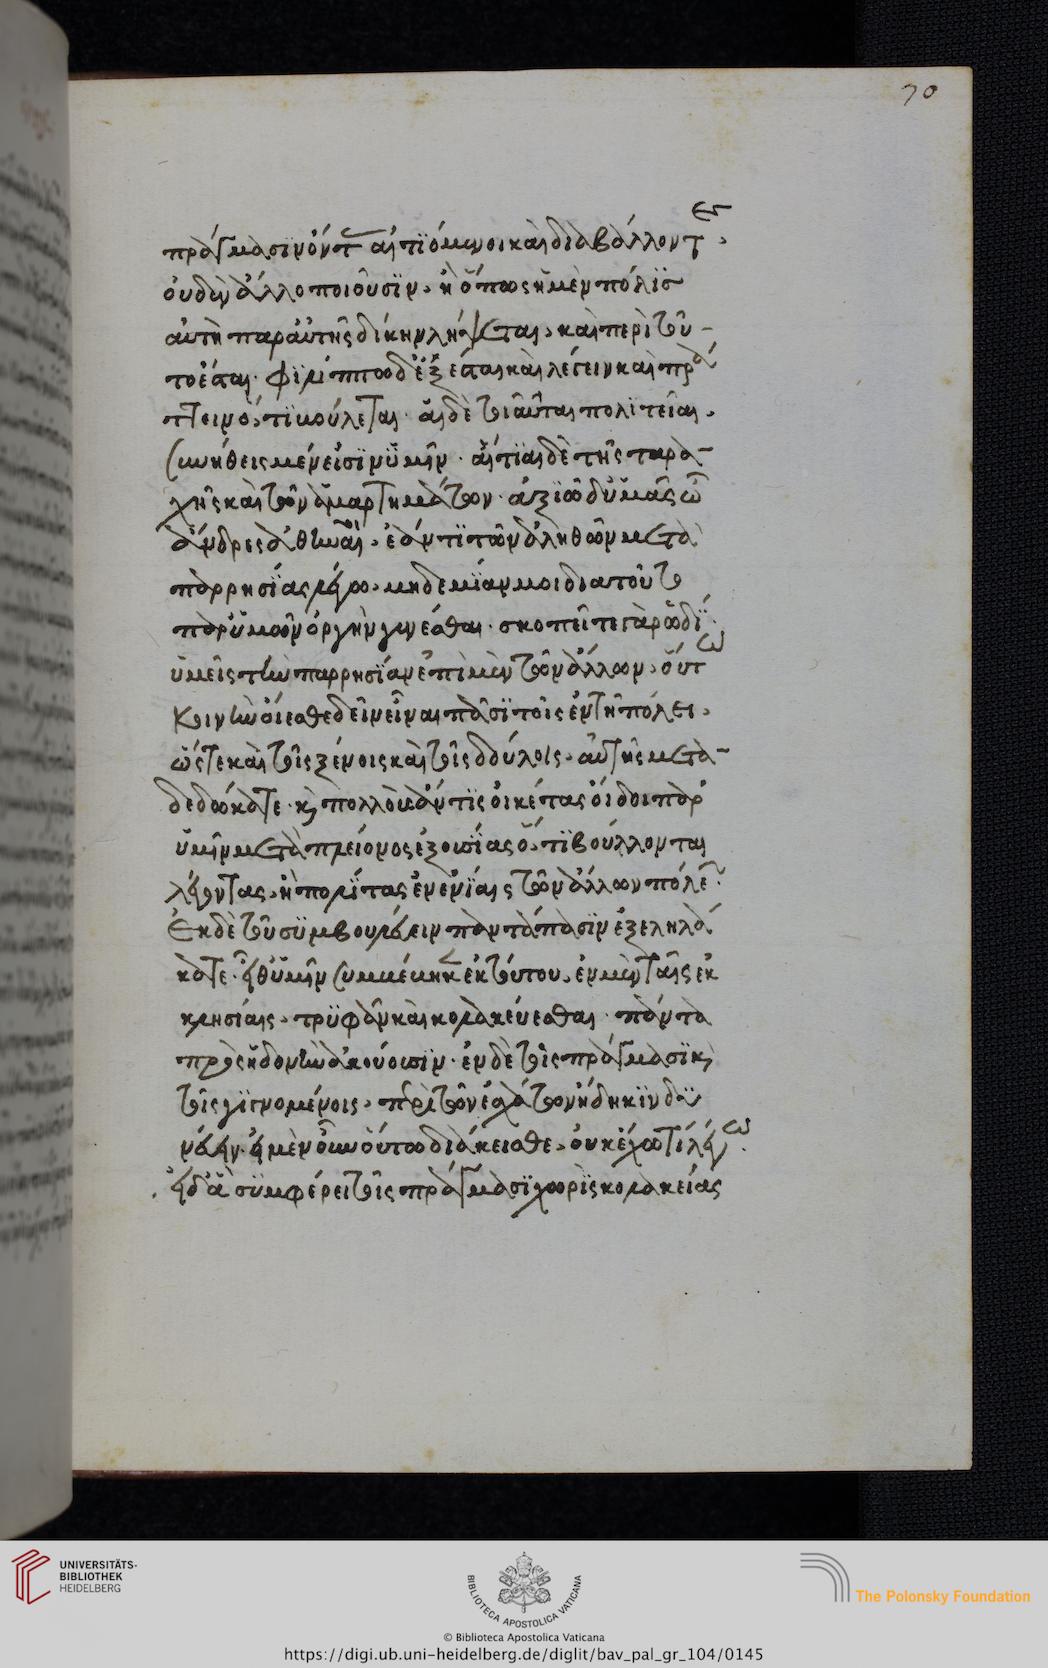 70
πράγμασιν ὄντας αἰτιώμενοι καὶ διαβάλλοντες,
οὐδὲν ἄλλο ποιοῦσιν, ἢ ὅπως ἡ μὲν πόλις
αὐτὴ παρ' αὐτῆς δίκην λήψεται, καὶ περὶ τοῦ-
το ἔσται· φιλίππωδ' ἐξέσται καὶ λέγειν καὶ πρά
ττειν ὅ,τι βούλεται· αἱ δὲ τοιαῦται πολιτεῖαι,
συνήθεις μέν εἰσιν ὑμῖν· αἴτιαι δὲ τῆς ταρα-
χῆς καὶ τῶν ἁμαρτημάτων· ἀξιῶ δ' ὑμᾶς ὦ
ἄνδρες ἀθηναῖοι, ἐάν τι τῶν ἀληθῶν μετὰ
παρρησίας λέγω, μηδεμίαν μοι διὰ τοῦτο
παρ' ὑμῶν ὀργὴν γενέσθαι· σκοπεῖτε γὰρ ὡδί·
ὑμεῖς τὴν παρρησίαν ἐπὶ μὲν τῶν ἄλλων, οὕτω
κοινὴν οἴεσθε δεῖν εἶναι πᾶσι τοῖς ἐν τῇ πόλει,
ὥστε καὶ τοῖς ξένοις καὶ τοῖς δούλοις, αὐτῆς μετα-
δεδώκατε· καὶ πολλοὺς ἄν τις οἰκέτας ἴδοι παρ'
ὑμῖν μετὰ πλείονος ἐξουσίας ὅ,τι βούλονται
λέγοντας, ἢ πολίτας ἐν ἐνίαις τῶν ἄλλων πόλεων·
ἐκ δὲ τοῦ συμβουλεύειν παντάπασιν ἐξεληλά
κατε· εἶθ' ὑμῖν συμβέβηκεν ἐκ τούτου, ἐν μὲν ταῖς ἐκ
κλησίαις, τρυφᾶν καὶ κολακεύεσθαι· πάντα
πρὸς ἡδονὴν ἀκούουσιν· ἐν δὲ τοῖς πράγμασι καὶ
τοῖς γιγνομένοις, περὶ τῶν ἐσχάτων ἤδη κινδυ
νεύειν· εἰ μὲν οὖν οὕτω διάκεισθε, οὐκ ἔχω τί λέγω.
εἰ δ' ἃ συμφέρει τοῖς πράγμασι χωρὶς κολακείας
UNIVERSITÄTS-
BIBLIOTHEK
HEIDELBERG
BIBLIOTECA APOSTOLICA VATICANA
The Polonsky Foundation
© Biblioteca Apostolica Vaticana
https://digi.ub.uni-heidelberg.de/diglit/bav_pal_gr_104/0145